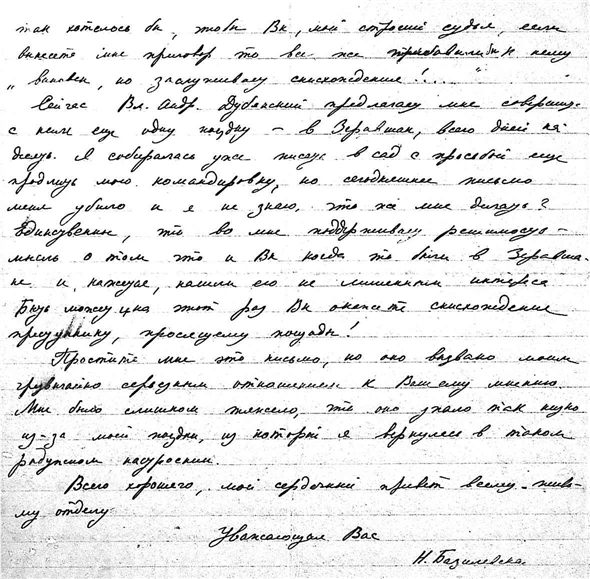 так хотелось бы, чтобы Вы, мой строгий судья, если
вынесете мне приговор то все же прибавили бы к нему
„виновен, но заслуживает снисхождения!...."
Сейчас Вл. Андр. Дубянский предлагает мне совершить
с ним еще одну поездку – в Зеравшан, всего дней на
десять. Я собиралась уже писать в сад с просьбой еще
продлить мою командировку, но сегодняшнее письмо
меня убило и я не знаю, что же мне делать?
Единственное, что во мне поддерживает решимость –
мысль о том что и Вы когда то были в Зеравша-
не и, кажется, нашли его не лишенным интереса
Быть может и на этот раз Вы окажете снисхождение
преступнику, просящему пощады!
Простите мне это письмо, но оно вызвано моим
чрезвычайно серьезным отношением к Вашему мнению.
Мне было слишком тяжело, что оно упало так низко
из-за моей поездки, из которой я вернулась в таком
радужном настроении.
Всего хорошего, мой сердечный привет всему живо-
му отделу
Уважающая Вас
Н. Базилевская